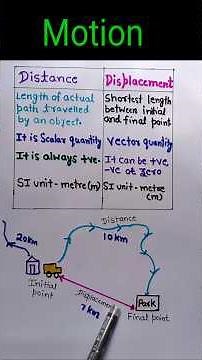 Motion
Distance
Displacement
Length of actual
path travelled
by an object.
Shortest length
between initial
and final point
It is Scalar quantity
Vector quantity
It is always +ve.
It can be +ve,
-ve or zero
SI unit-metre(m)
SI unit-metre
(m)
Distance
20km
10km
Initial
point
Displacement
7km
Park
Final point